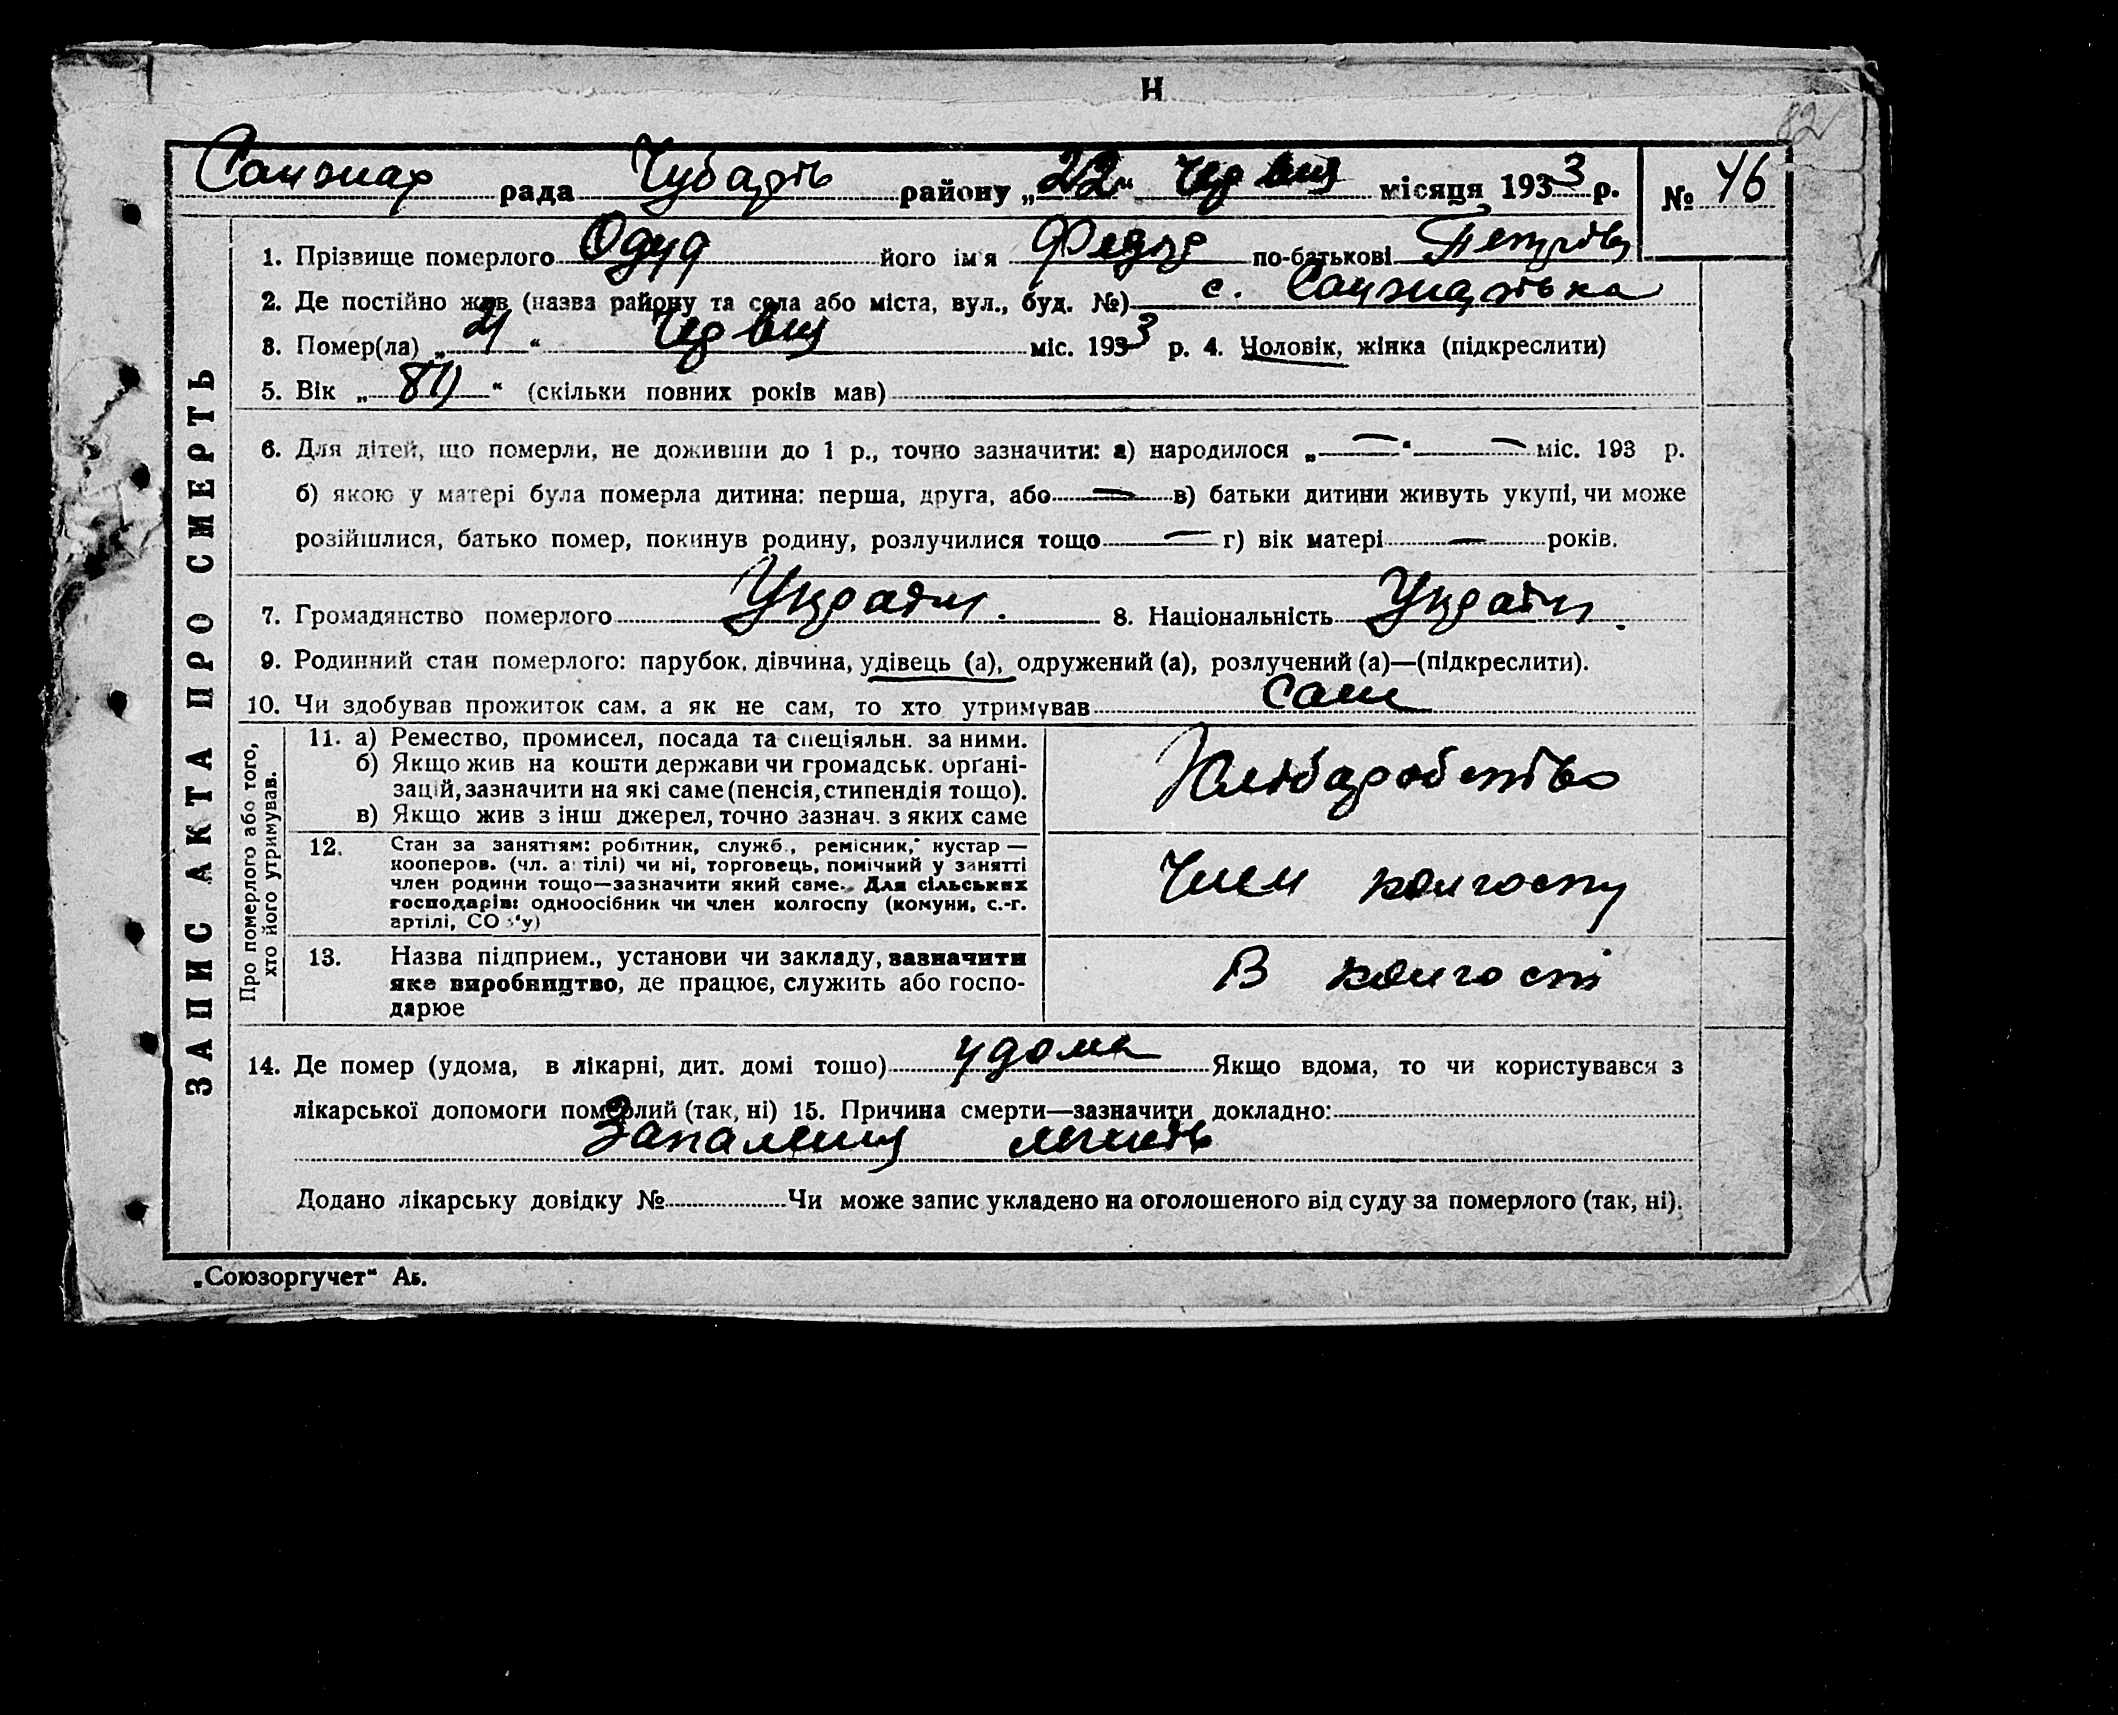 Н
82
Санжар рада Чубарів району „22“ Червня місяця 1933 р. № 46
ЗАПИС АКТА ПРО СМЕРТЬ
1. Прізвище померлого Одуд його ім'я Федор по-батькові Петрові
2. Де постійно жив (назва району та села або міста, вул., буд. №) с.
3. Помер(ла) „21“ Червня міс. 1933 р. 4. Чоловік, жінка (підкреслити)
5. Вік „80“ (скільки повних років мав)
6. Для дітей, що померли, не доживши до 1 р., точно зазначити: а) народилося „—“ — міс. 193 р.
б) якою у матері була померла дитина: перша, друга, або — в) батьки дитини живуть укупі, чи може
розійшлися, батько помер, покинув родину, розлучилися тощо — г) вік матері — років.
7. Громадянство померлого Україн. 8. Національність Україн.
9. Родинний стан померлого: парубок, дівчина, удівець (а), одружений (а), розлучений (а)—(підкреслити).
10. Чи здобував прожиток сам, а як не сам, то хто утримував сам
Про померлого або того,
хто його утримував.
11. а) Ремество, промисел, посада та спеціяльн. за ними.
б) Якщо жив на кошти держави чи громадськ. органі-
зацій, зазначити на які саме (пенсія, стипендія тощо).
в) Якщо жив з інш джерел, точно зазнач. з яких саме
Хлібаробство
12. Стан за заняттям: робітник, служб., ремісник, кустар —
кооперов. (чл. артілі) чи ні, торговець, помічний у занятті
член родини тощо—зазначити який саме. Для сільських
господарів: одноосібник чи член колгоспу (комуни, с.-г.
артілі, СОЗ'у)
Член колгоспу
13. Назва підприєм., установи чи закладу, зазначити
яке виробництво, де працює, служить або госпо-
дарює
В колгоспі
14. Де помер (удома, в лікарні, дит. домі тощо) удома Якщо вдома, то чи користувався з
лікарської допомоги померлий (так, ні) 15. Причина смерти—зазначити докладно:
Запалення легенів
Додано лікарську довідку № Чи може запис укладено на оголошеного від суду за померлого (так, ні).
„Союзоргучет“ Аб.